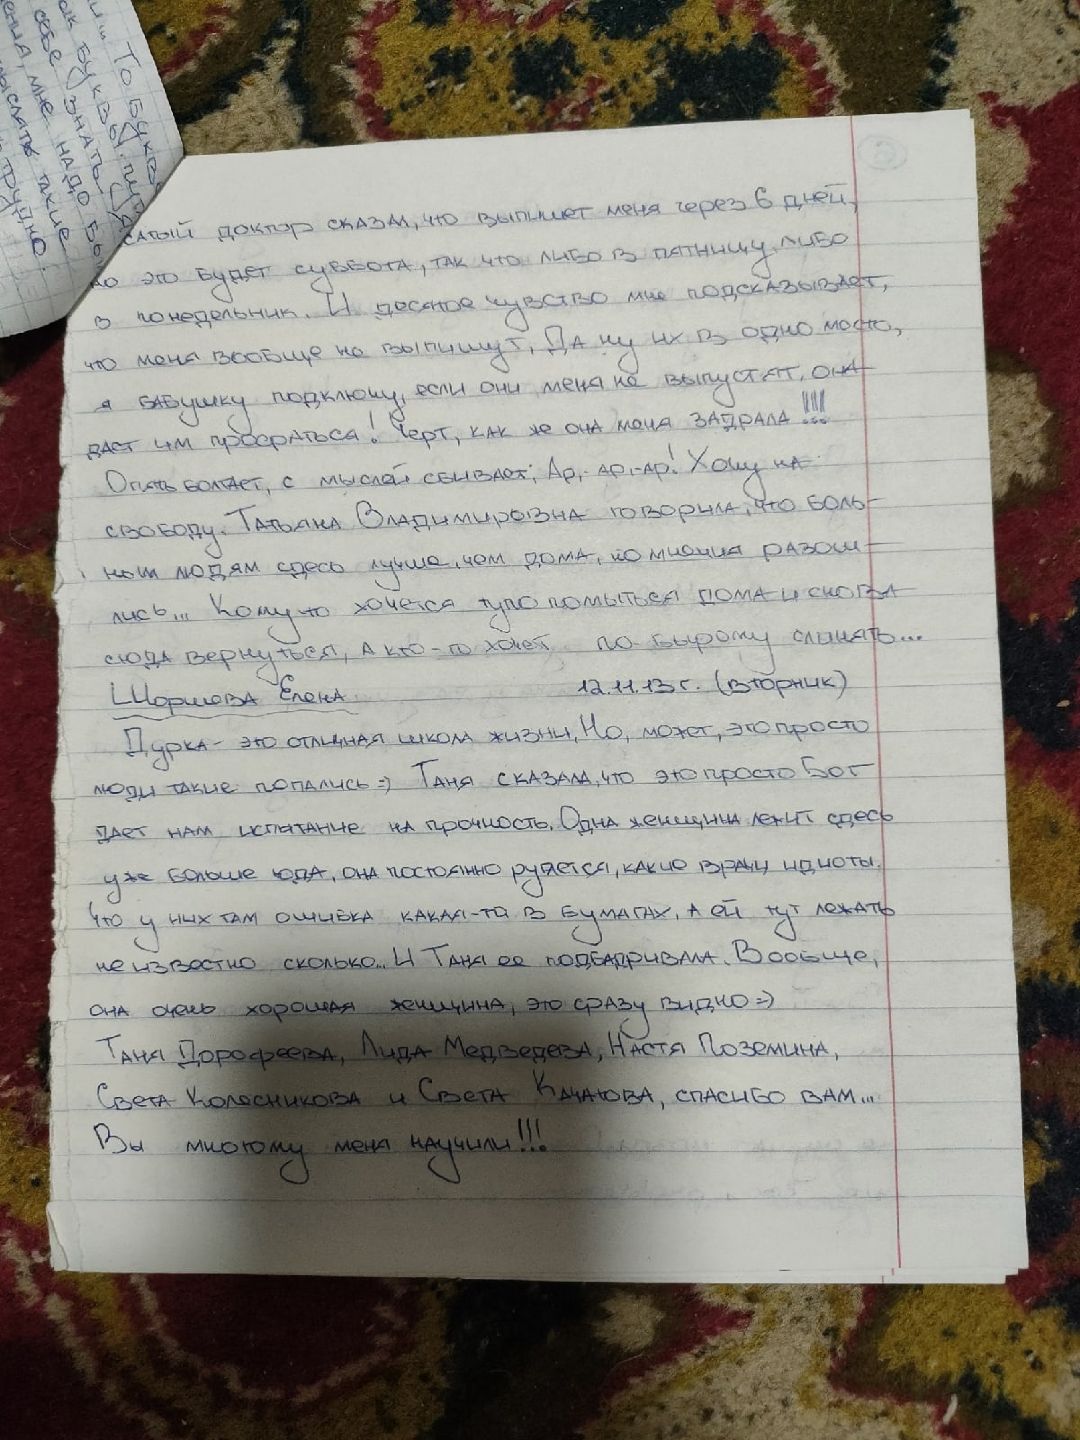 То буквы
буквы.
себе знать
мне надо бы
мыслять такие
трудно.
6
сатый доктор сказал, что выпишет меня через 6 дней,
но это будет суббота, так что либо в пятницу, либо
в понедельник. И десятое чувство мне подсказывает,
что меня вообще не выпишут. Да ну их в одно место,
я бабушку подключу, если они меня не выпустят, она
даст им просраться! Черт, как же она меня задрала!!!
Опять болтает, с мыслей сбивает, Ар,-ар,-ар! Хочу на
свободу. Татьяна Владимировна говорила, что боль-
ным людям здесь лучше, чем дома, но мнения разош-
лись... Кому-то хочется тупо помыться дома и снова
сюда вернуться, а кто-то хочет по-бырому слинять...
Елена 12.11.13 г. (вторник)
Дурка - это отличная школа жизни, Но, может, это просто
люди такие попались =) Таня сказала, что это просто Бог
дает нам испытание на прочность. Одна женщина лежит здесь
уже больше года, она постоянно ругается, какие врачи идиоты.
Что у них там ошибка какая-то в бумагах, а ей тут лежать
неизвестно сколько.. И Таня ее подбадривала. Вообще,
она очень хорошая женщина, это сразу видно =)
Таня Дорофеева, Лида Медведева, Настя Поземина,
Света Колесникова и Света, спасибо вам...
Вы многому меня научили!!!